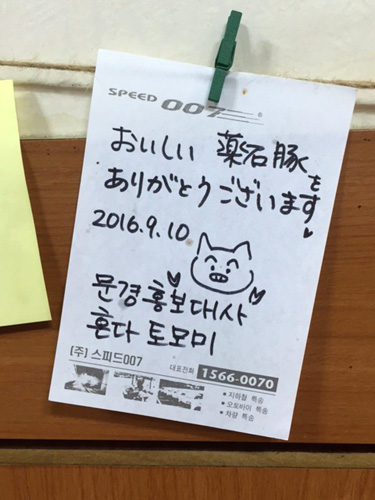 SPEED 007
おいしい 薬石豚を
ありがとうございます
2016.9.10
문경홍보대사
혼다 토모미
(주) 스피드007
대표전화 1566-0070
• 지하철 특송
• 오토바이 특송
• 차량 특송